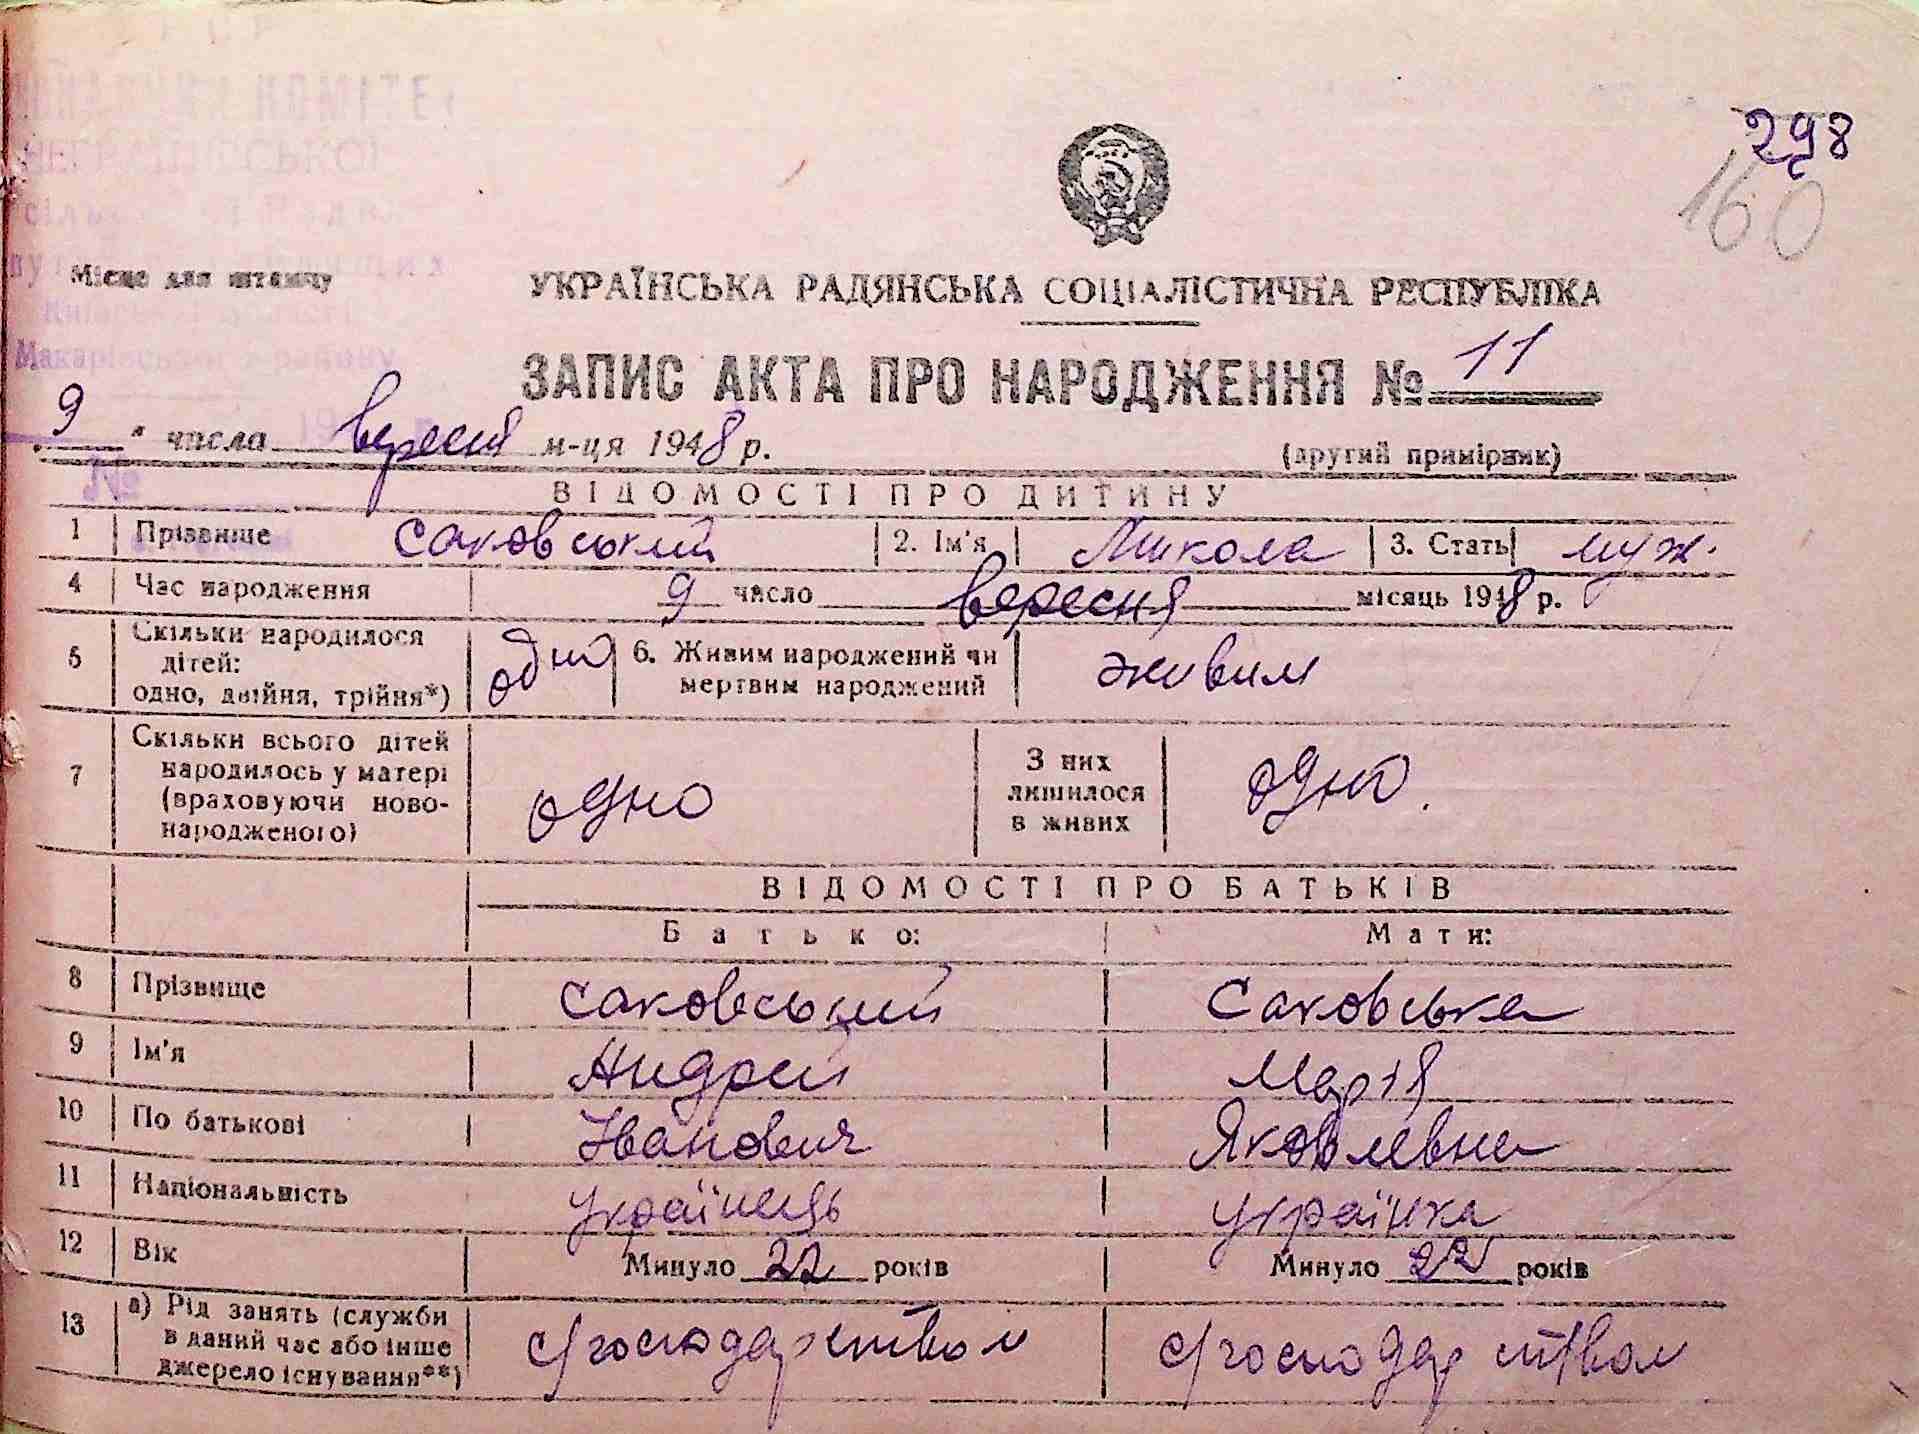 КОМІТЕ
сіль
Макарівського району
298
160
Місце для штампу
УКРАЇНСЬКА РАДЯНСЬКА СОЦІАЛІСТИЧНА РЕСПУБЛІКА
ЗАПИС АКТА ПРО НАРОДЖЕННЯ № 11
9 " числа вересня м-ця 1948 р.
(другий примірник)
№
ВІДОМОСТІ ПРО ДИТИНУ
1 Прізвище Саковський 2. Ім'я Микола 3. Стать муж.
4 Час народження 9 число вересня місяць 1948 р.
5 Скільки народилося дітей: одно, двійня, трійня*) одно 6. Живим народжений чи мертвим народжений живим
7 Скільки всього дітей народилось у матері (враховуючи ново-народженого) одно З них лишилося в живих одно.
ВІДОМОСТІ ПРО БАТЬКІВ
Батько: Мати:
8 Прізвище Саковський Саковська
9 Ім'я Андрей Марія
10 По батькові Іванович Яковлевна
11 Національність українець українка
12 Вік Минуло 22 років Минуло 22 років
13 а) Рід занять (служби в даний час або інше джерело існування**) с/господарством с/господарством